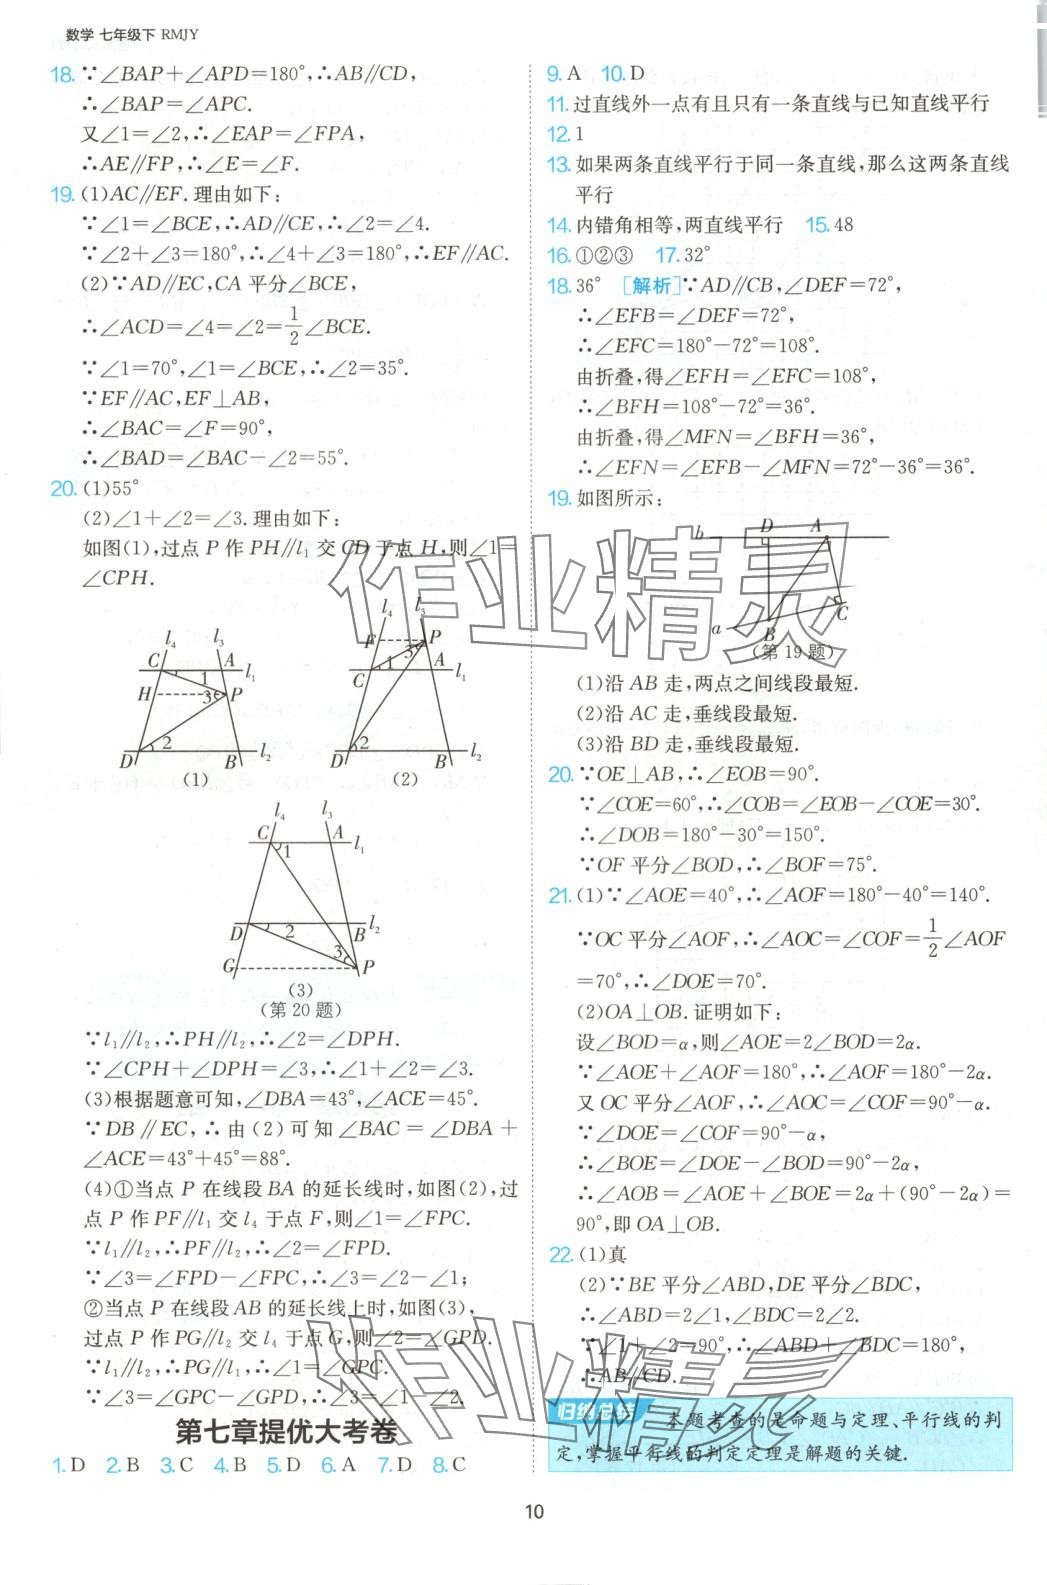 数学 七年级下 RMJY
18. ∵∠BAP+∠APD=180°,∴AB∥CD,
∴∠BAP=∠APC.
又∠1=∠2,∴∠EAP=∠FPA,
∴AE∥FP,∴∠E=∠F.
19. (1)AC∥EF.理由如下:
∵∠1=∠BCE,∴AD∥CE,∴∠2=∠4.
∵∠2+∠3=180°,∴∠4+∠3=180°,∴EF∥AC.
(2)∵AD∥EC,CA平分∠BCE,
∴∠ACD=∠4=∠2=1/2∠BCE.
∵∠1=70°,∠1=∠BCE,∴∠2=35°.
∵EF∥AC,EF⊥AB,
∴∠BAC=∠F=90°,
∴∠BAD=∠BAC-∠2=55°.
20. (1)55°
(2)∠1+∠2=∠3.理由如下:
如图(1),过点P作PH∥l₁交CD于点H,则∠1=
∠CPH.
l₄ l₃
C A l₁
1
H 3 P
D 2 B l₂
(1)
l₄ l₃
F 3 P
C 1 A l₁
D 2 B l₂
(2)
l₄ l₃
C 1 A l₁
D 2 B l₂
G 3 P
(3)
(第20题)
∵l₁∥l₂,∴PH∥l₂,∴∠2=∠DPH.
∵∠CPH+∠DPH=∠3,∴∠1+∠2=∠3.
(3)根据题意可知,∠DBA=43°,∠ACE=45°.
∵DB∥EC,∴由(2)可知∠BAC=∠DBA+
∠ACE=43°+45°=88°.
(4)①当点P在线段BA的延长线时,如图(2),过
点P作PF∥l₁交l₄于点F,则∠1=∠FPC.
∵l₁∥l₂,∴PF∥l₂,∴∠2=∠FPD.
∵∠3=∠FPD-∠FPC,∴∠3=∠2-∠1;
②当点P在线段AB的延长线上时,如图(3),
过点P作PG∥l₂交l₄于点G,则∠2=∠GPD.
∵l₁∥l₂,∴PG∥l₁,∴∠1=∠GPC.
∵∠3=∠GPC-∠GPD,∴∠3=∠1-∠2.
第七章提优大考卷
1. D 2. B 3. C 4. B 5. D 6. A 7. D 8. C
9. A 10. D
11. 过直线外一点有且只有一条直线与已知直线平行
12. 1
13. 如果两条直线平行于同一条直线,那么这两条直线
平行
14. 内错角相等,两直线平行 15. 48
16. ①②③ 17. 32°
18. 36° [解析]∵AD∥CB,∠DEF=72°,
∴∠EFB=∠DEF=72°,
∴∠EFC=180°-72°=108°.
由折叠,得∠EFH=∠EFC=108°,
∴∠BFH=108°-72°=36°.
由折叠,得∠MFN=∠BFH=36°,
∴∠EFN=∠EFB-∠MFN=72°-36°=36°.
19. 如图所示:
b D A
a B C
(第19题)
(1)沿AB走,两点之间线段最短.
(2)沿AC走,垂线段最短.
(3)沿BD走,垂线段最短.
20. ∵OE⊥AB,∴∠EOB=90°.
∵∠COE=60°,∴∠COB=∠EOB-∠COE=30°.
∴∠DOB=180°-30°=150°.
∵OF平分∠BOD,∴∠BOF=75°.
21. (1)∵∠AOE=40°,∴∠AOF=180°-40°=140°.
∵OC平分∠AOF,∴∠AOC=∠COF=1/2∠AOF
=70°,∴∠DOE=70°.
(2)OA⊥OB.证明如下:
设∠BOD=α,则∠AOE=2∠BOD=2α.
∵∠AOE+∠AOF=180°,∴∠AOF=180°-2α.
又OC平分∠AOF,∴∠AOC=∠COF=90°-α.
∵∠DOE=∠COF=90°-α,
∴∠BOE=∠DOE-∠BOD=90°-2α,
∴∠AOB=∠AOE+∠BOE=2α+(90°-2α)=
90°,即OA⊥OB.
22. (1)真
(2)∵BE平分∠ABD,DE平分∠BDC,
∴∠ABD=2∠1,∠BDC=2∠2.
∵∠1+∠2=90°,∴∠ABD+∠BDC=180°,
∴AB∥CD.
归纳总结 本题考查的是命题与定理、平行线的判
定,掌握平行线的判定定理是解题的关键.
10
作业精灵
作业精灵